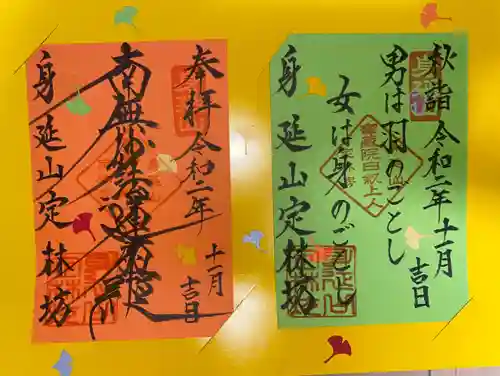 奉拝 令和二年
十一月
吉日
南無妙法蓮華経
身延山定林坊
秋詣 令和二年
十一月
吉日
男は羽のごとし
女は身のごとし
身延山定林坊